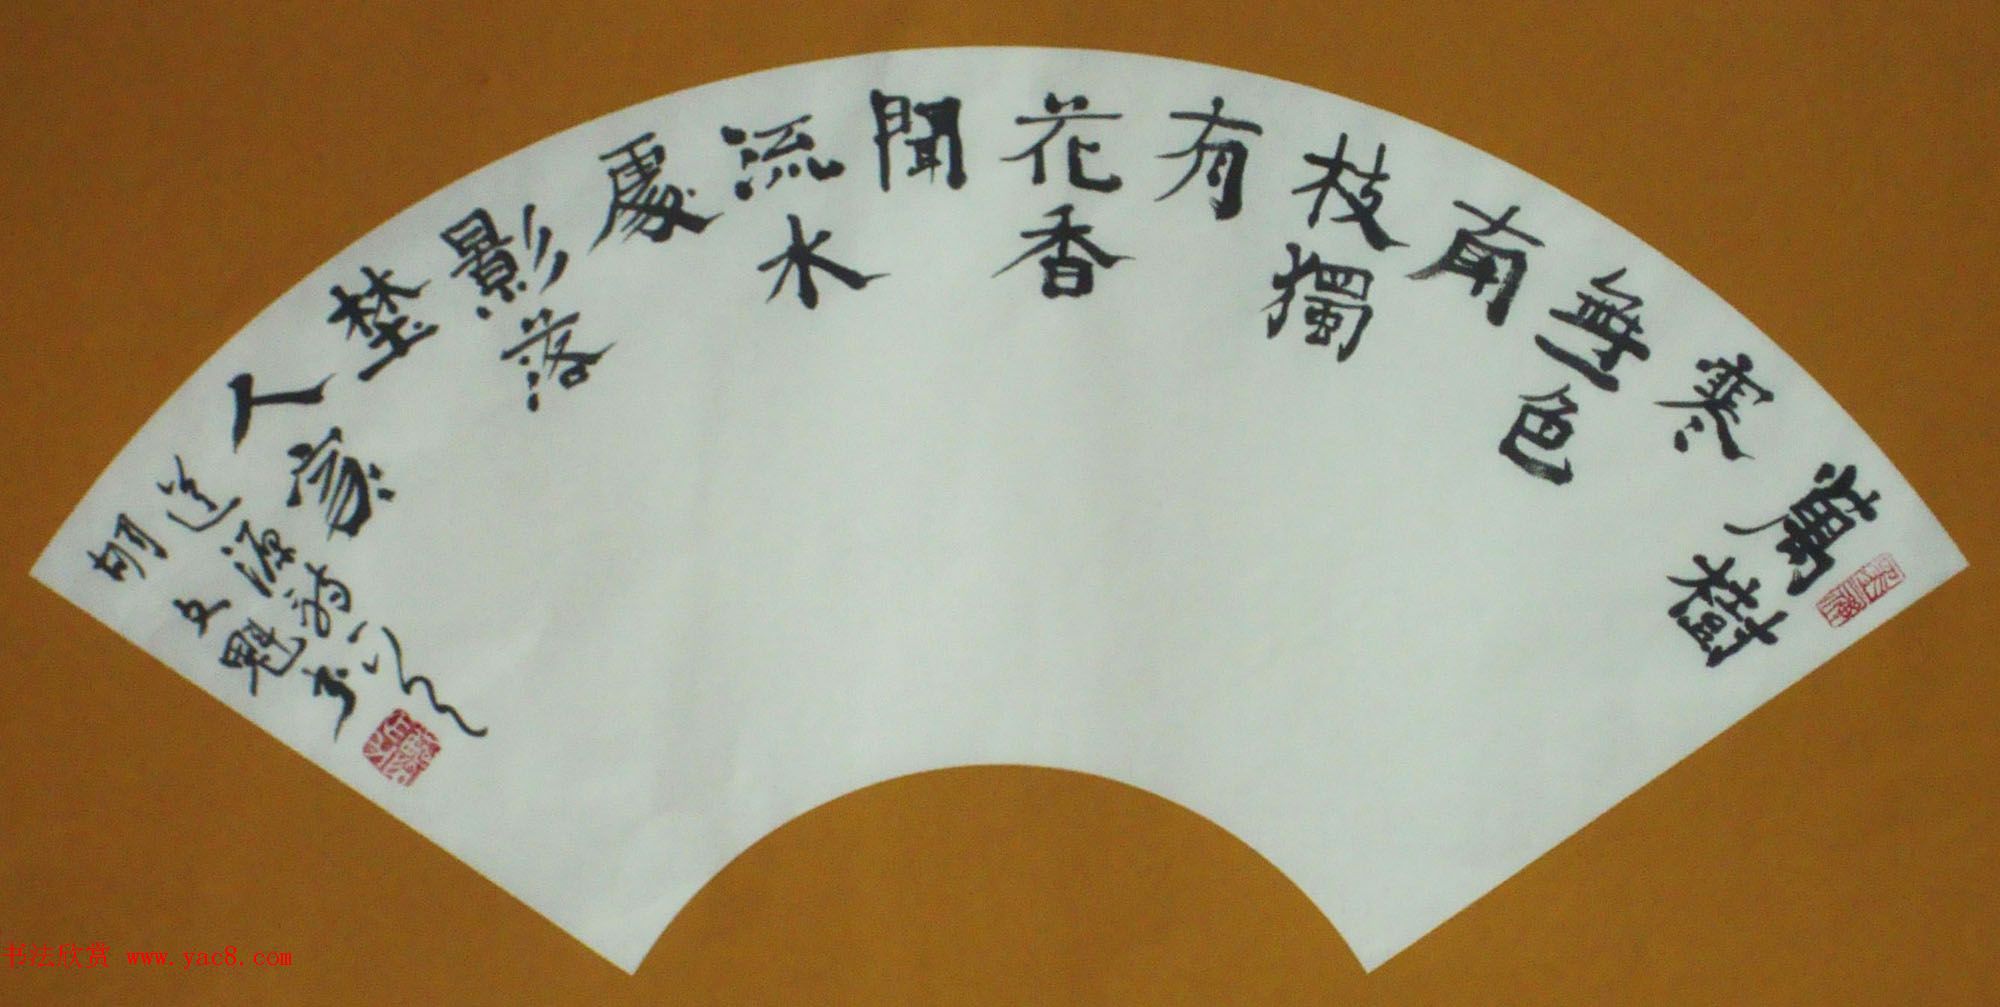 萬樹
寒
無色
南
枝獨
有
花香
聞
流水
處
影落
埜
人家
道源詩
胡文魁书
书法欣赏 www.yac8.com